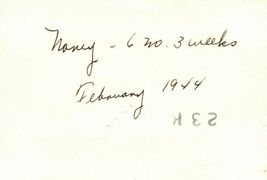 Nancy - 6 mo. 3 weeks
February 1944
23K